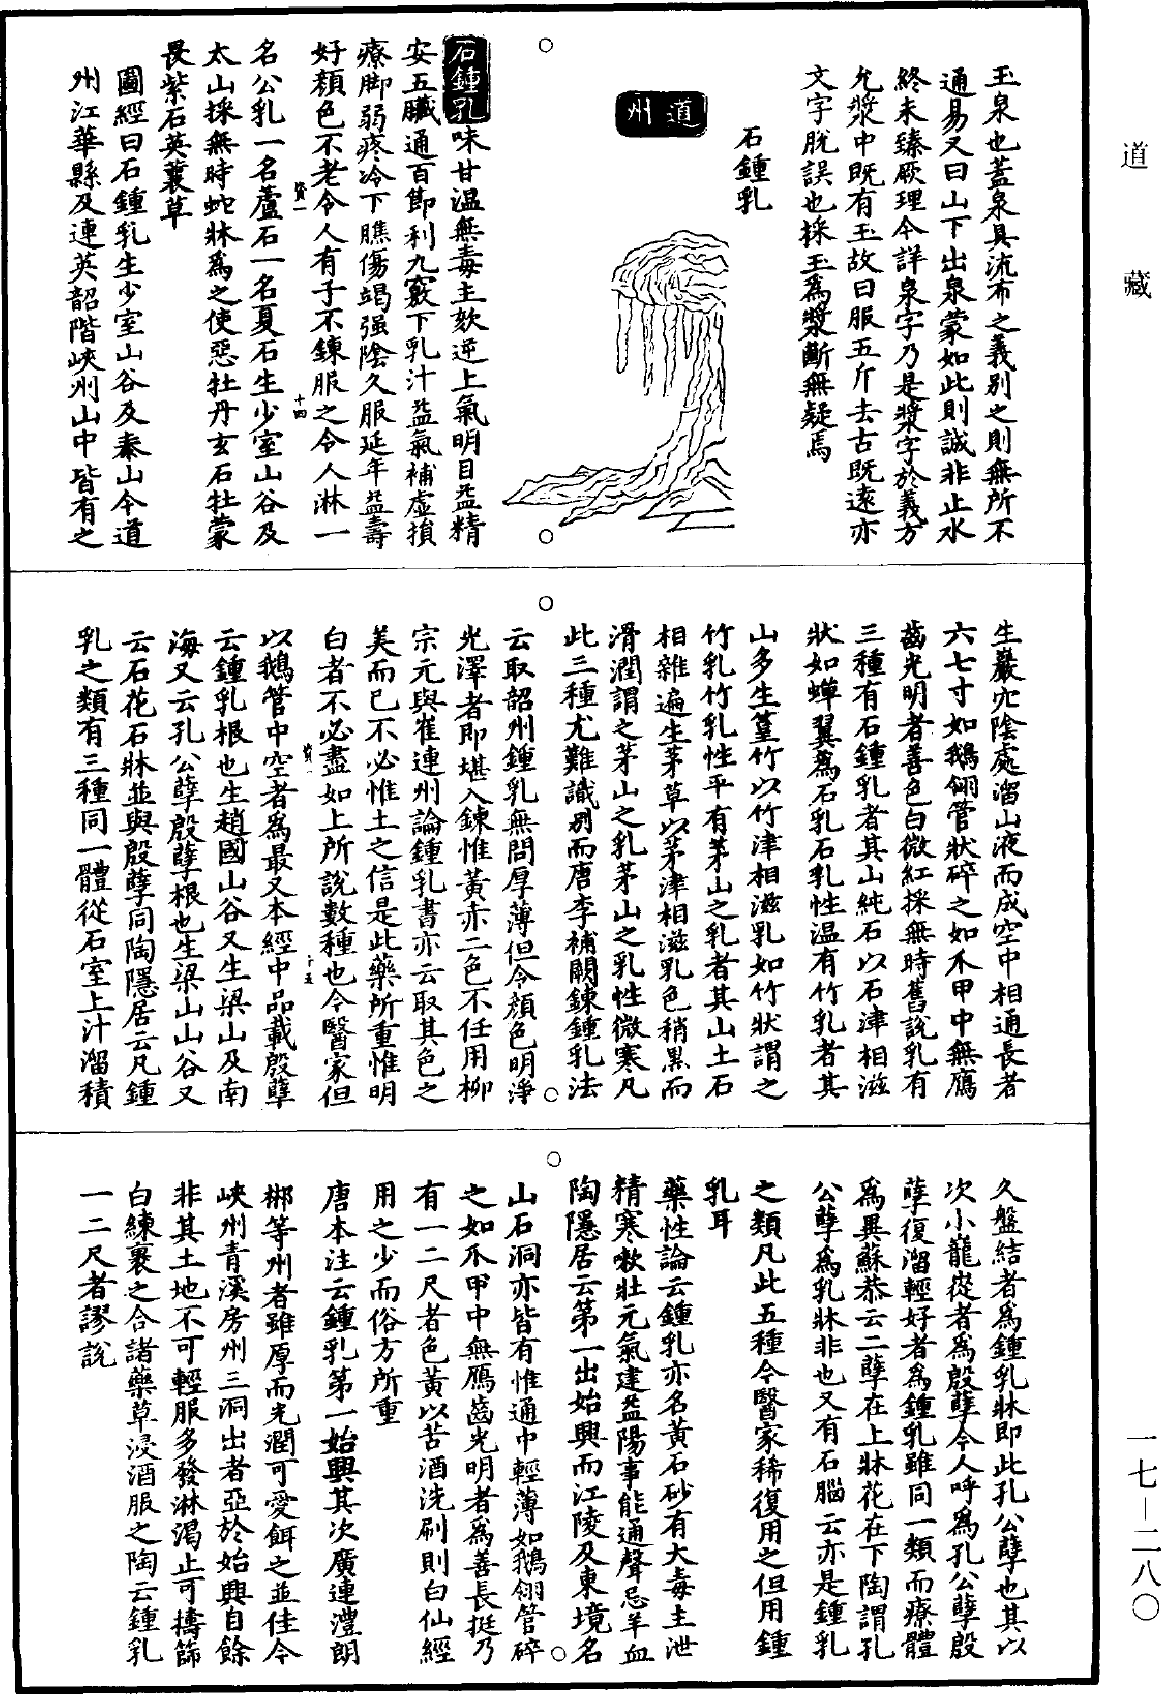 道藏
玉泉也蓋泉具流布之義別之則無所不
通易又曰山下出泉蒙如此則誠非止水
終未臻厥理今詳泉字乃是漿字於義方
允漿中既有玉故曰服五斤去古既遠亦
文字脫誤也採玉為漿斷無疑焉
石鍾乳
道州
石鍾乳味甘溫無毒主欬逆上氣明目益精
安五臟通百節利九竅下乳汁益氣補虛損
療脚弱疼冷下膲傷竭强陰久服延年益壽
好顏色不老令人有子不鍊服之令人淋一
十四
名公乳一名蘆石一名夏石生少室山谷及
太山採無時蛇牀為之使惡牡丹玄石牡蒙
畏紫石英蘘草
圖經曰石鍾乳生少室山谷及泰山今道
州江華縣及連英韶階峽州山中皆有之
生巖穴陰處溜山液而成空中相通長者
六七寸如鵝翎管狀碎之如爪甲中無鴈
齒光明者善色白微紅採無時舊說乳有
三種有石鍾乳者其山純石以石津相滋
狀如蟬翼為石乳石乳性溫有竹乳者其
山多生篁竹以竹津相滋乳如竹狀謂之
竹乳竹乳性平有茅山之乳者其山土石
相雜遍生茅草以茅津相滋乳色稍黑而
滑潤謂之茅山之乳茅山之乳性微寒凡
此三種尤難識別而唐李補闕鍊鍾乳法
云取韶州鍾乳無問厚薄但令顏色明淨
光澤者即堪入鍊惟黃赤二色不任用柳
宗元與崔連州論鍾乳書亦云取其色之
美而已不必惟土之信是此藥所重惟明
白者不必盡如上所說數種也今醫家但
十五
以鵝管中空者為最又本經中品載殷孽
云鍾乳根也生趙國山谷又生梁山及南
海又云孔公孽殷孽根也生梁山山谷又
云石花石牀並與殷孽同陶隱居云凡鍾
乳之類有三種同一體從石室上汁溜積
久盤結者為鍾乳牀即此孔公孽也其以
次小巃嵸者為殷孽今人呼為孔公孽殷
孽復溜輕好者為鍾乳雖同一類而療體
為異蘇恭云二孽在上牀花在下陶謂孔
公孽為乳牀非也又有石腦云亦是鍾乳
之類凡此五種今醫家稀復用之但用鍾
乳耳
藥性論云鍾乳亦名黃石砂有大毒主泄
精寒嗽壯元氣建益陽事能通聲忌羊血
陶隱居云第一出始興而江陵及東境名
山石洞亦皆有惟通中輕薄如鵝翎管碎
之如爪甲中無鴈齒光明者為善長挺乃
有一二尺者色黃以苦酒洗刷則白仙經
用之少而俗方所重
唐本注云鍾乳第一始興其次廣連澧朗
郴等州者雖厚而光潤可愛餌之並佳今
峽州青溪房州三洞出者亞於始興自餘
非其土地不可輕服多發淋渴止可擣篩
白練裹之合諸藥草浸酒服之陶云鍾乳
一二尺者謬說
一七—二八〇